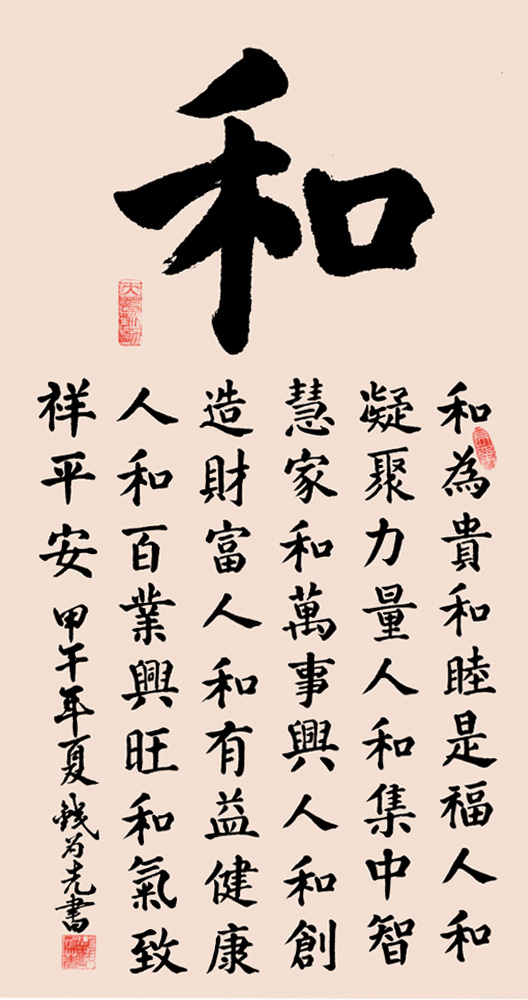 和
和為貴和睦是福人和
凝聚力量人和集中智
慧家和萬事興人和創
造財富人和有益健康
人和百業興旺和氣致
祥平安
甲午年夏錢为先書